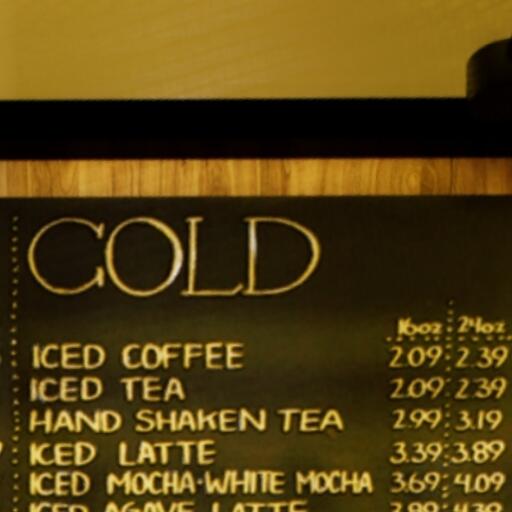 COLD
16oz 24oz
ICED COFFEE 2.09 2.39
ICED TEA 2.09 2.39
HAND SHAKEN TEA 2.99 3.19
ICED LATTE 3.39 3.89
ICED MOCHA·WHITE MOCHA 3.69 4.09
ICED AGAVE LATTE